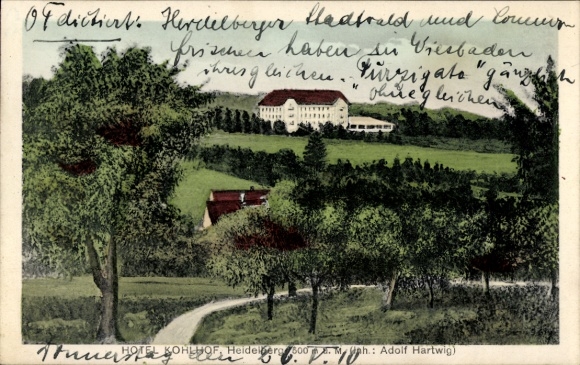 diktiert: Heidelberger Stadtwald und Sommer-
frischen haben zu Wiesbaden
ihresgleichen. "Purzigata" gänzlich
ohnegleichen
HOTEL KOHLHOF, Heidelberg 500 m ü. M. (Inh.: Adolf Hartwig)
Donnerstag den 26. V. 10